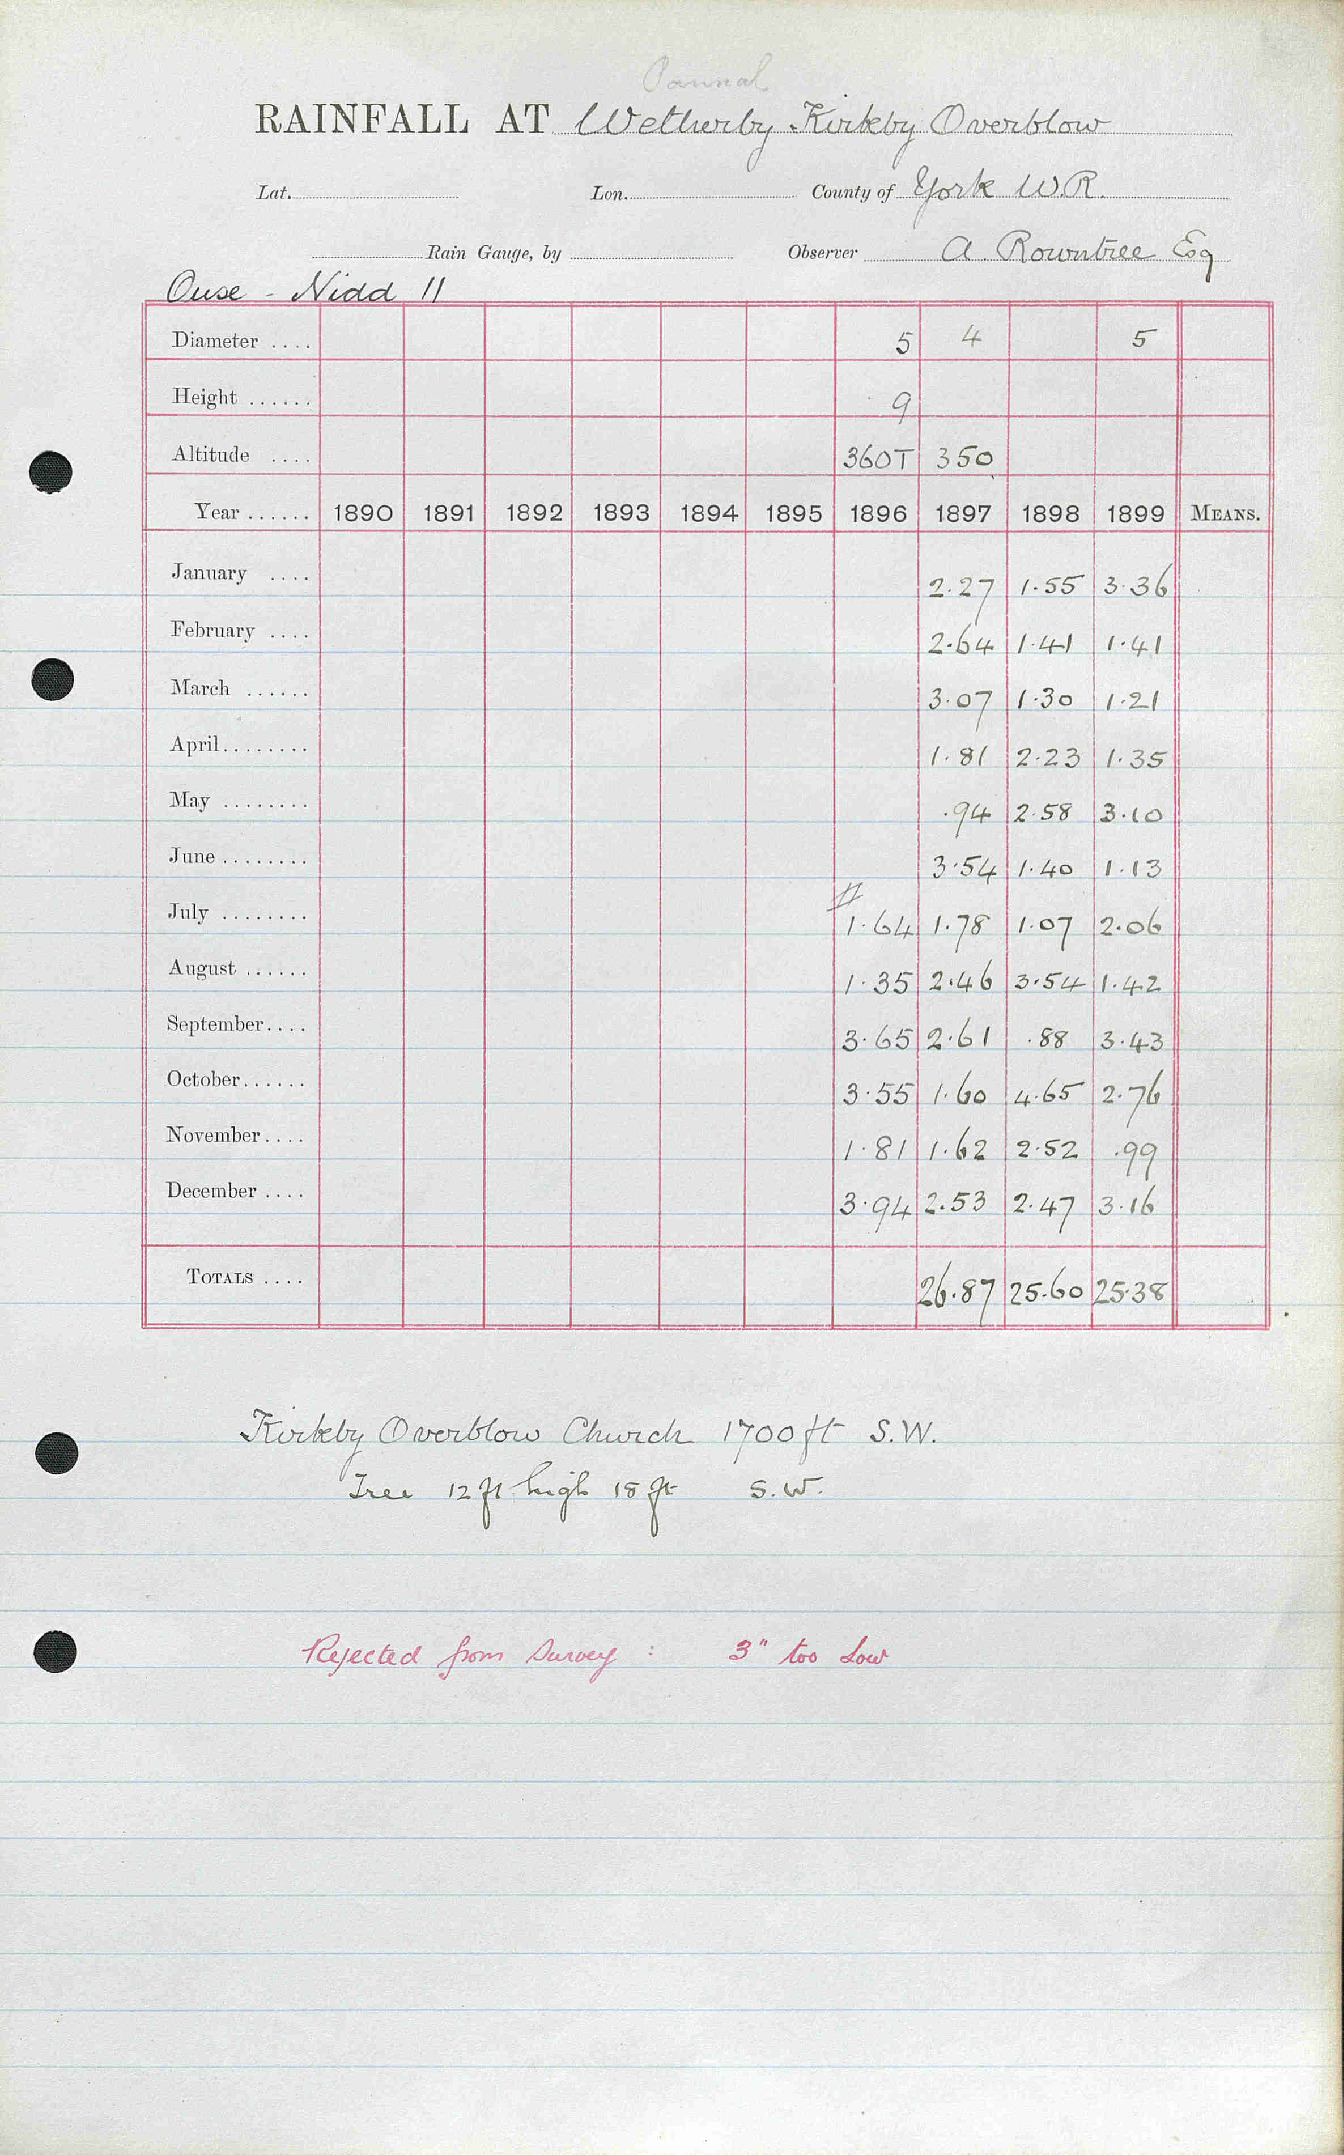 Pannal
RAINFALL AT Wetherby Kirkby Overblow
Lat. Lon. County of York W.R.
Rain Gauge, by Observer A Rowntree Esq
Ouse - Nidd 11
Diameter .... 5 4 5
Height ...... 9
Altitude .... 360T 350
Year ...... 1890 1891 1892 1893 1894 1895 1896 1897 1898 1899 MEANS.
January .... 2.27 1.55 3.36
February .... 2.64 1.41 1.41
March ...... 3.07 1.30 1.21
April........ 1.81 2.23 1.35
May ........ .94 2.58 3.10
June ........ 3.54 1.40 1.13
July ........ 1.64 1.78 1.07 2.06
August ...... 1.35 2.46 3.54 1.42
September.... 3.65 2.61 .88 3.43
October...... 3.55 1.60 4.65 2.76
November.... 1.81 1.62 2.52 .99
December .... 3.94 2.53 2.47 3.16
TOTALS .... 26.87 25.60 25.38
Kirkby Overblow Church 1700ft S.W.
Tree 12ft high 18ft S.W.
Rejected from Survey : 3" too Low